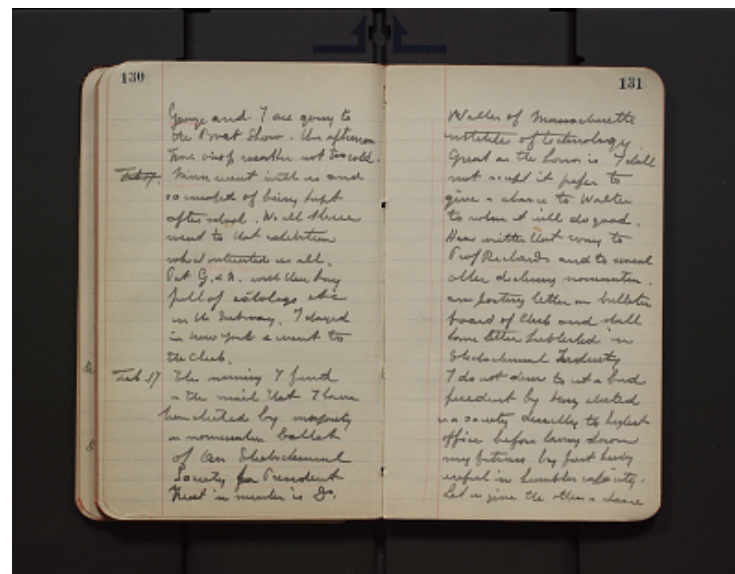 130
George and I are going to
the Boat Show. this afternoon
Fine crisp weather not too cold.
Feb 17. Minn went with us and
so instead of being kept
after school. We all three
went to that exhibition
which interested us all.
Put G. & M. with their bag
full of catalogs etc
in the Subway. I stayed
in New York & went to
the Club.
Feb 17 This morning I find
in the mail that I have
been elected by majority
on nomination ballot
of Am Electrochemical
Society for President
Next in number is Dr.
131
Walker of Massachusetts
institute of technology.
Great as the honor is I shall
not accept it prefer to
give a chance to Walker
to whom it will do good.
Have written that way to
Prof Richards and to several
other declining nomination.
am posting letter on bulletin
board of Club and shall
have letter published in
Electrochemical Industry
I do not desire to set a bad
precedent by being elected
in a society directly to highest
office before having shown
my fitness by first having
served in humbler capacity.
Let us give the others a chance